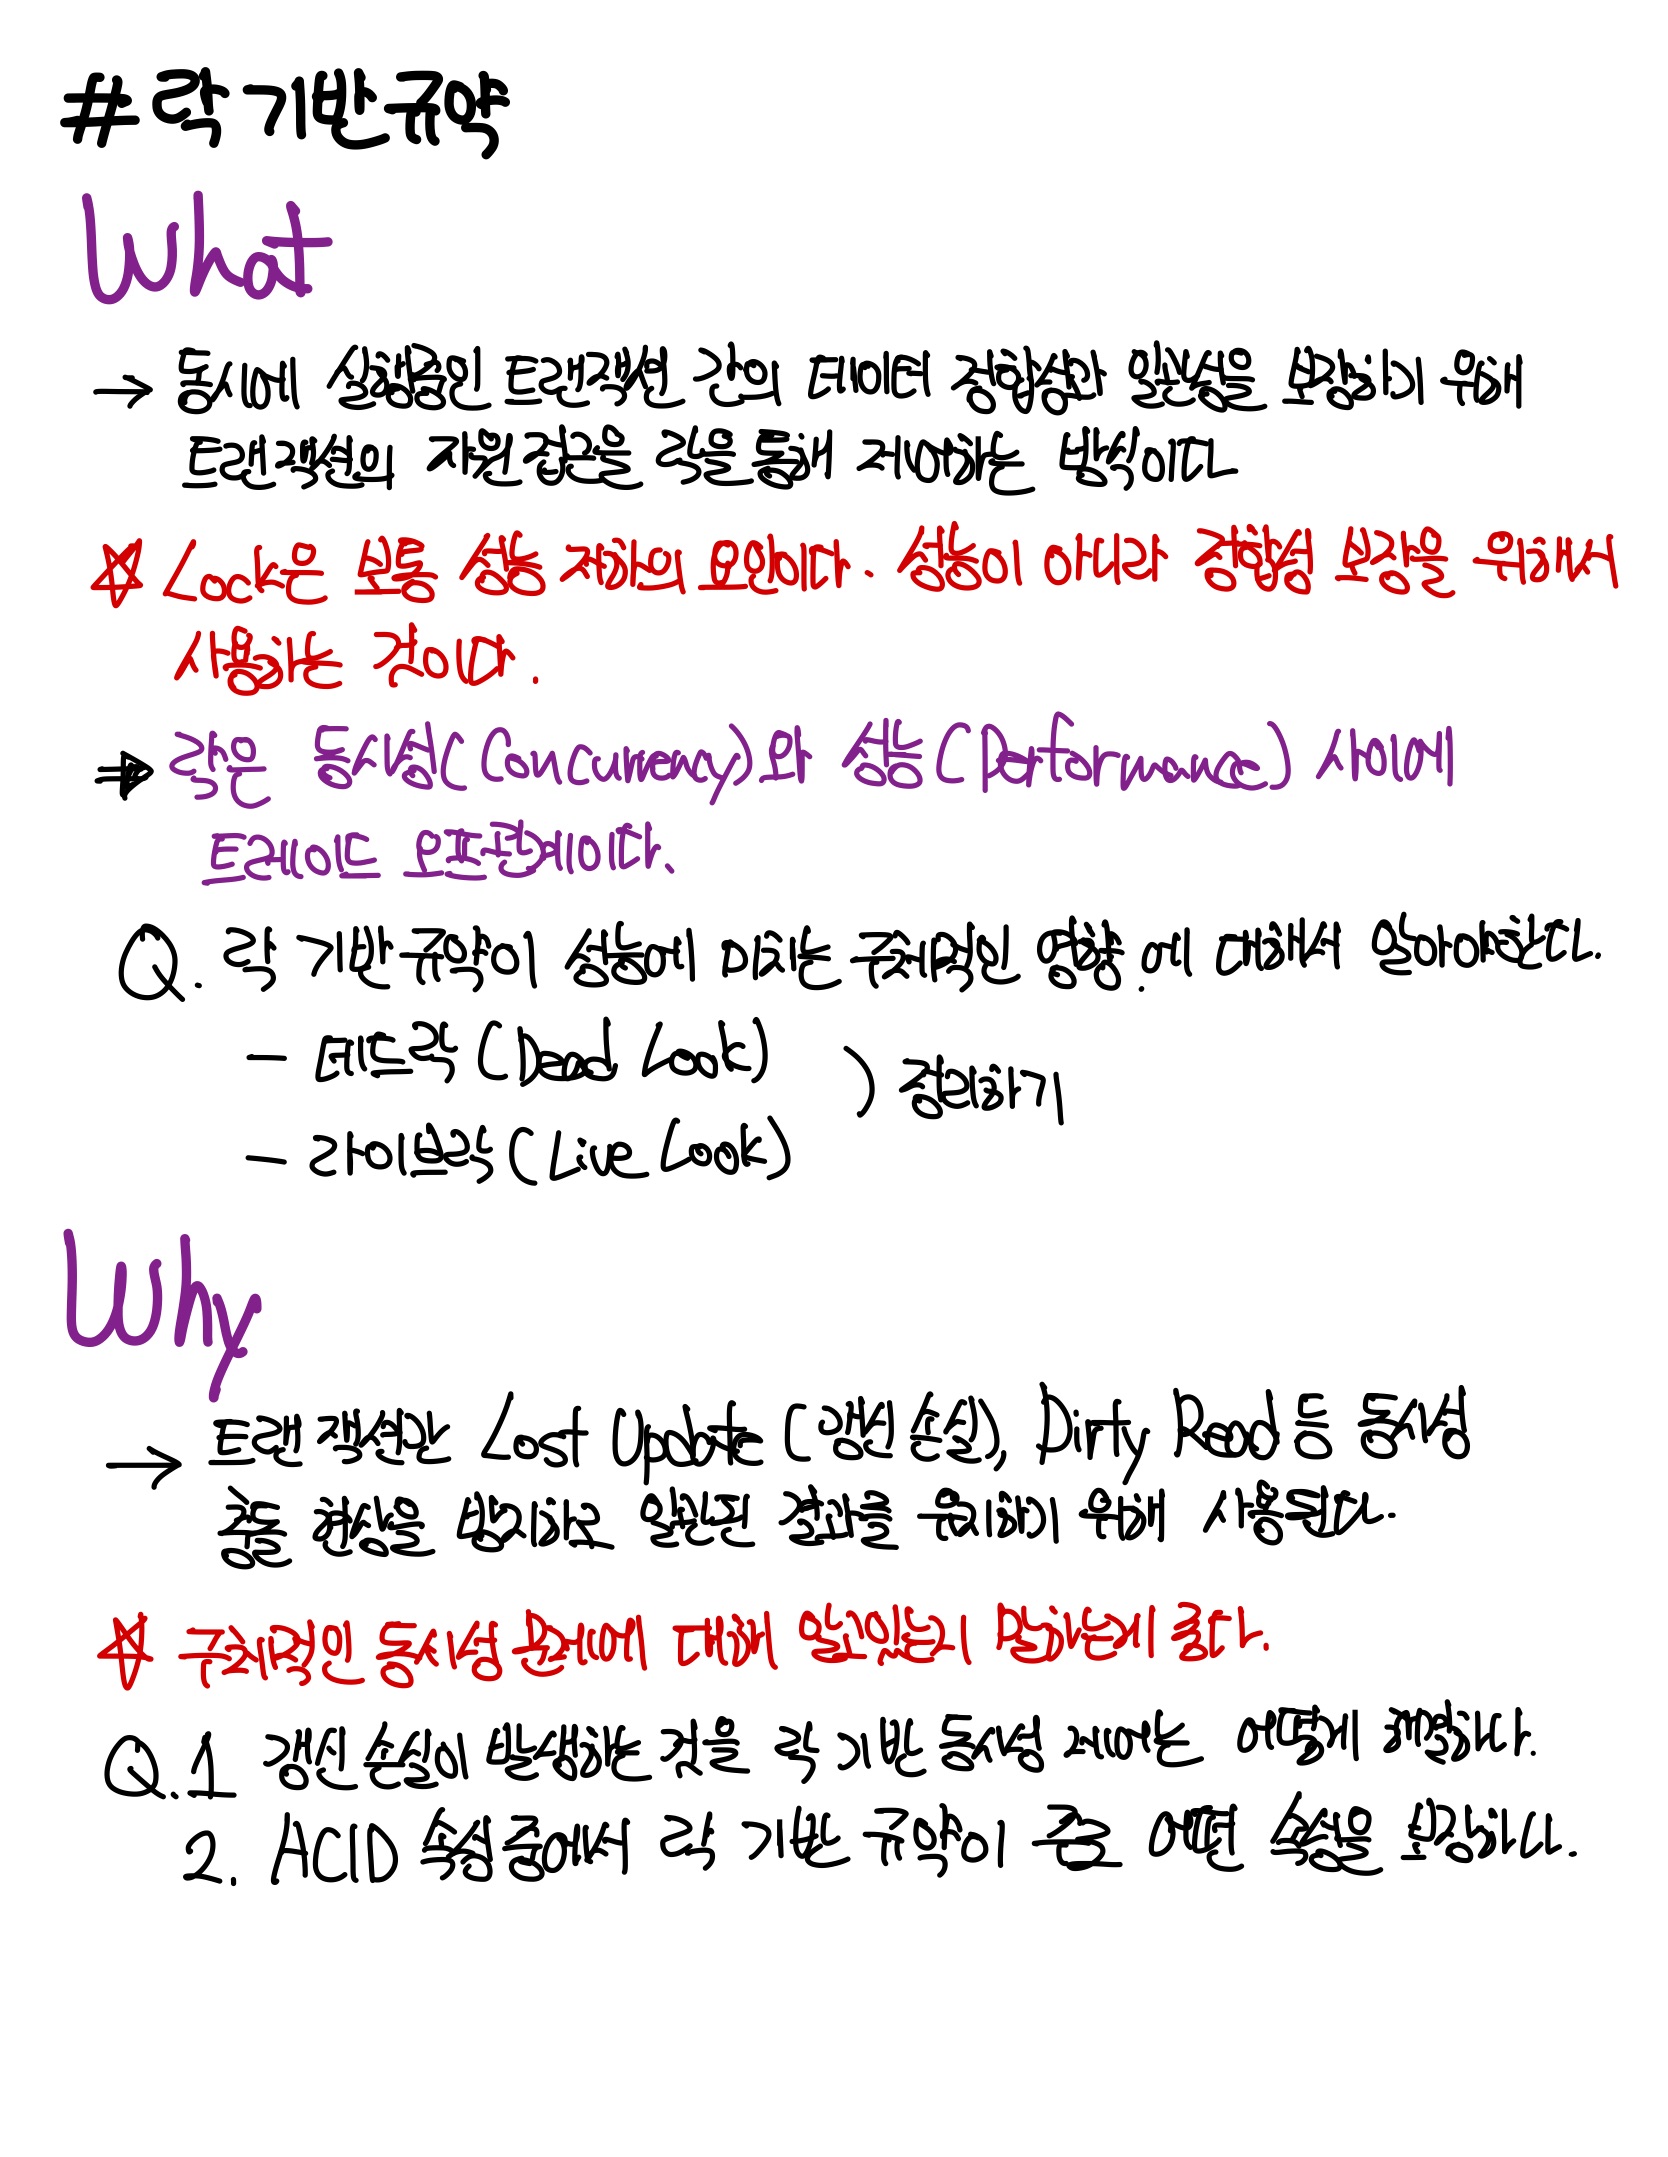 # 락 기반 규약
What
→ 동시에 실행중인 트랜잭션 간의 데이터 정합성과 일관성을 보장하기 위해
트랜잭션의 자원 접근을 락을 통해 제어하는 방식이다
☆ Lock은 보통 성능 저하의 요인이다. 성능이 아니라 정합성 보장을 위해서
사용하는 것이다.
⇒ 락은 동시성(Concurrency)와 성능(Performance) 사이에
트레이드 오프관계이다.
Q. 락 기반 규약이 성능에 미치는 구체적인 영향.에 대해서 알아야한다.
- 데드락 (Dead Lock)
) 정리하기
- 라이브락 (Live Lock)
Why
→ 트랜잭션간 Lost Update (갱신 손실), Dirty Read 등 동시성
충돌 현상을 방지하고 일관된 결과를 유지하기 위해 사용된다.
☆ 구체적인 동시성 문제에 대해 알고있는지 말하는게 좋다.
Q.1 갱신 손실이 발생하는 것을 락 기반 동시성 제어는 어떻게 해결하나.
2. ACID 속성 중에서 락 기반 규약이 주로 어떤 속성을 보장하나.